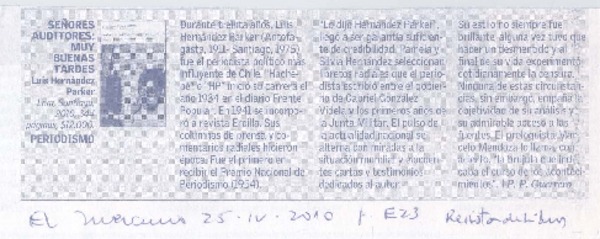 SEÑORES
AUDITORES:
MUY
BUENAS
TARDES
Luis Hernández
Parker
Lom, Santiago,
2010, 344
páginas, $12.000.
PERIODISMO
Durante treinta años, Luis
Hernández Parker (Antofa-
gasta, 1911-Santiago, 1975)
fue el periodista político más
influyente de Chile. "Hache-
pe" o "HP" inició su carrera el
año 1934 en el diario Frente
Popular. En 1941 se incorpo-
ró a revista Ercilla. Sus
columnas de prensa y co-
mentarios radiales hicieron
época: Fue el primero en
recibir el Premio Nacional de
Periodismo (1954).
"Lo dijo Hernández Parker",
llegó a ser garantía suficien-
te de credibilidad. Pamela y
Silvia Hernández seleccionan
libretos radiales que el perio-
dista escribió entre el gobier-
no de Gabriel González
Videla y los primeros años de
la Junta Militar. El pulso de
la actualidad nacional se
alterna con miradas a la
situación mundial
cartas y testimonios
dedicados al autor.
Su estilo no siempre fue
brillante, alguna vez tuvo que
hacer un desmentido y al
final de su vida experimentó
cotidianamente la censura.
Ninguna de estas circunstan-
cias, sin embargo, empaña la
objetividad de su análisis y
su admirable acceso a las
fuentes. El prologuista
Mendoza lo llama, con
"la brújula que indi-
caba el curso de los aconteci-
mientos". P. P. Guerrero
El Mercurio 25-IV-2010 p. E23 Revista de Libros